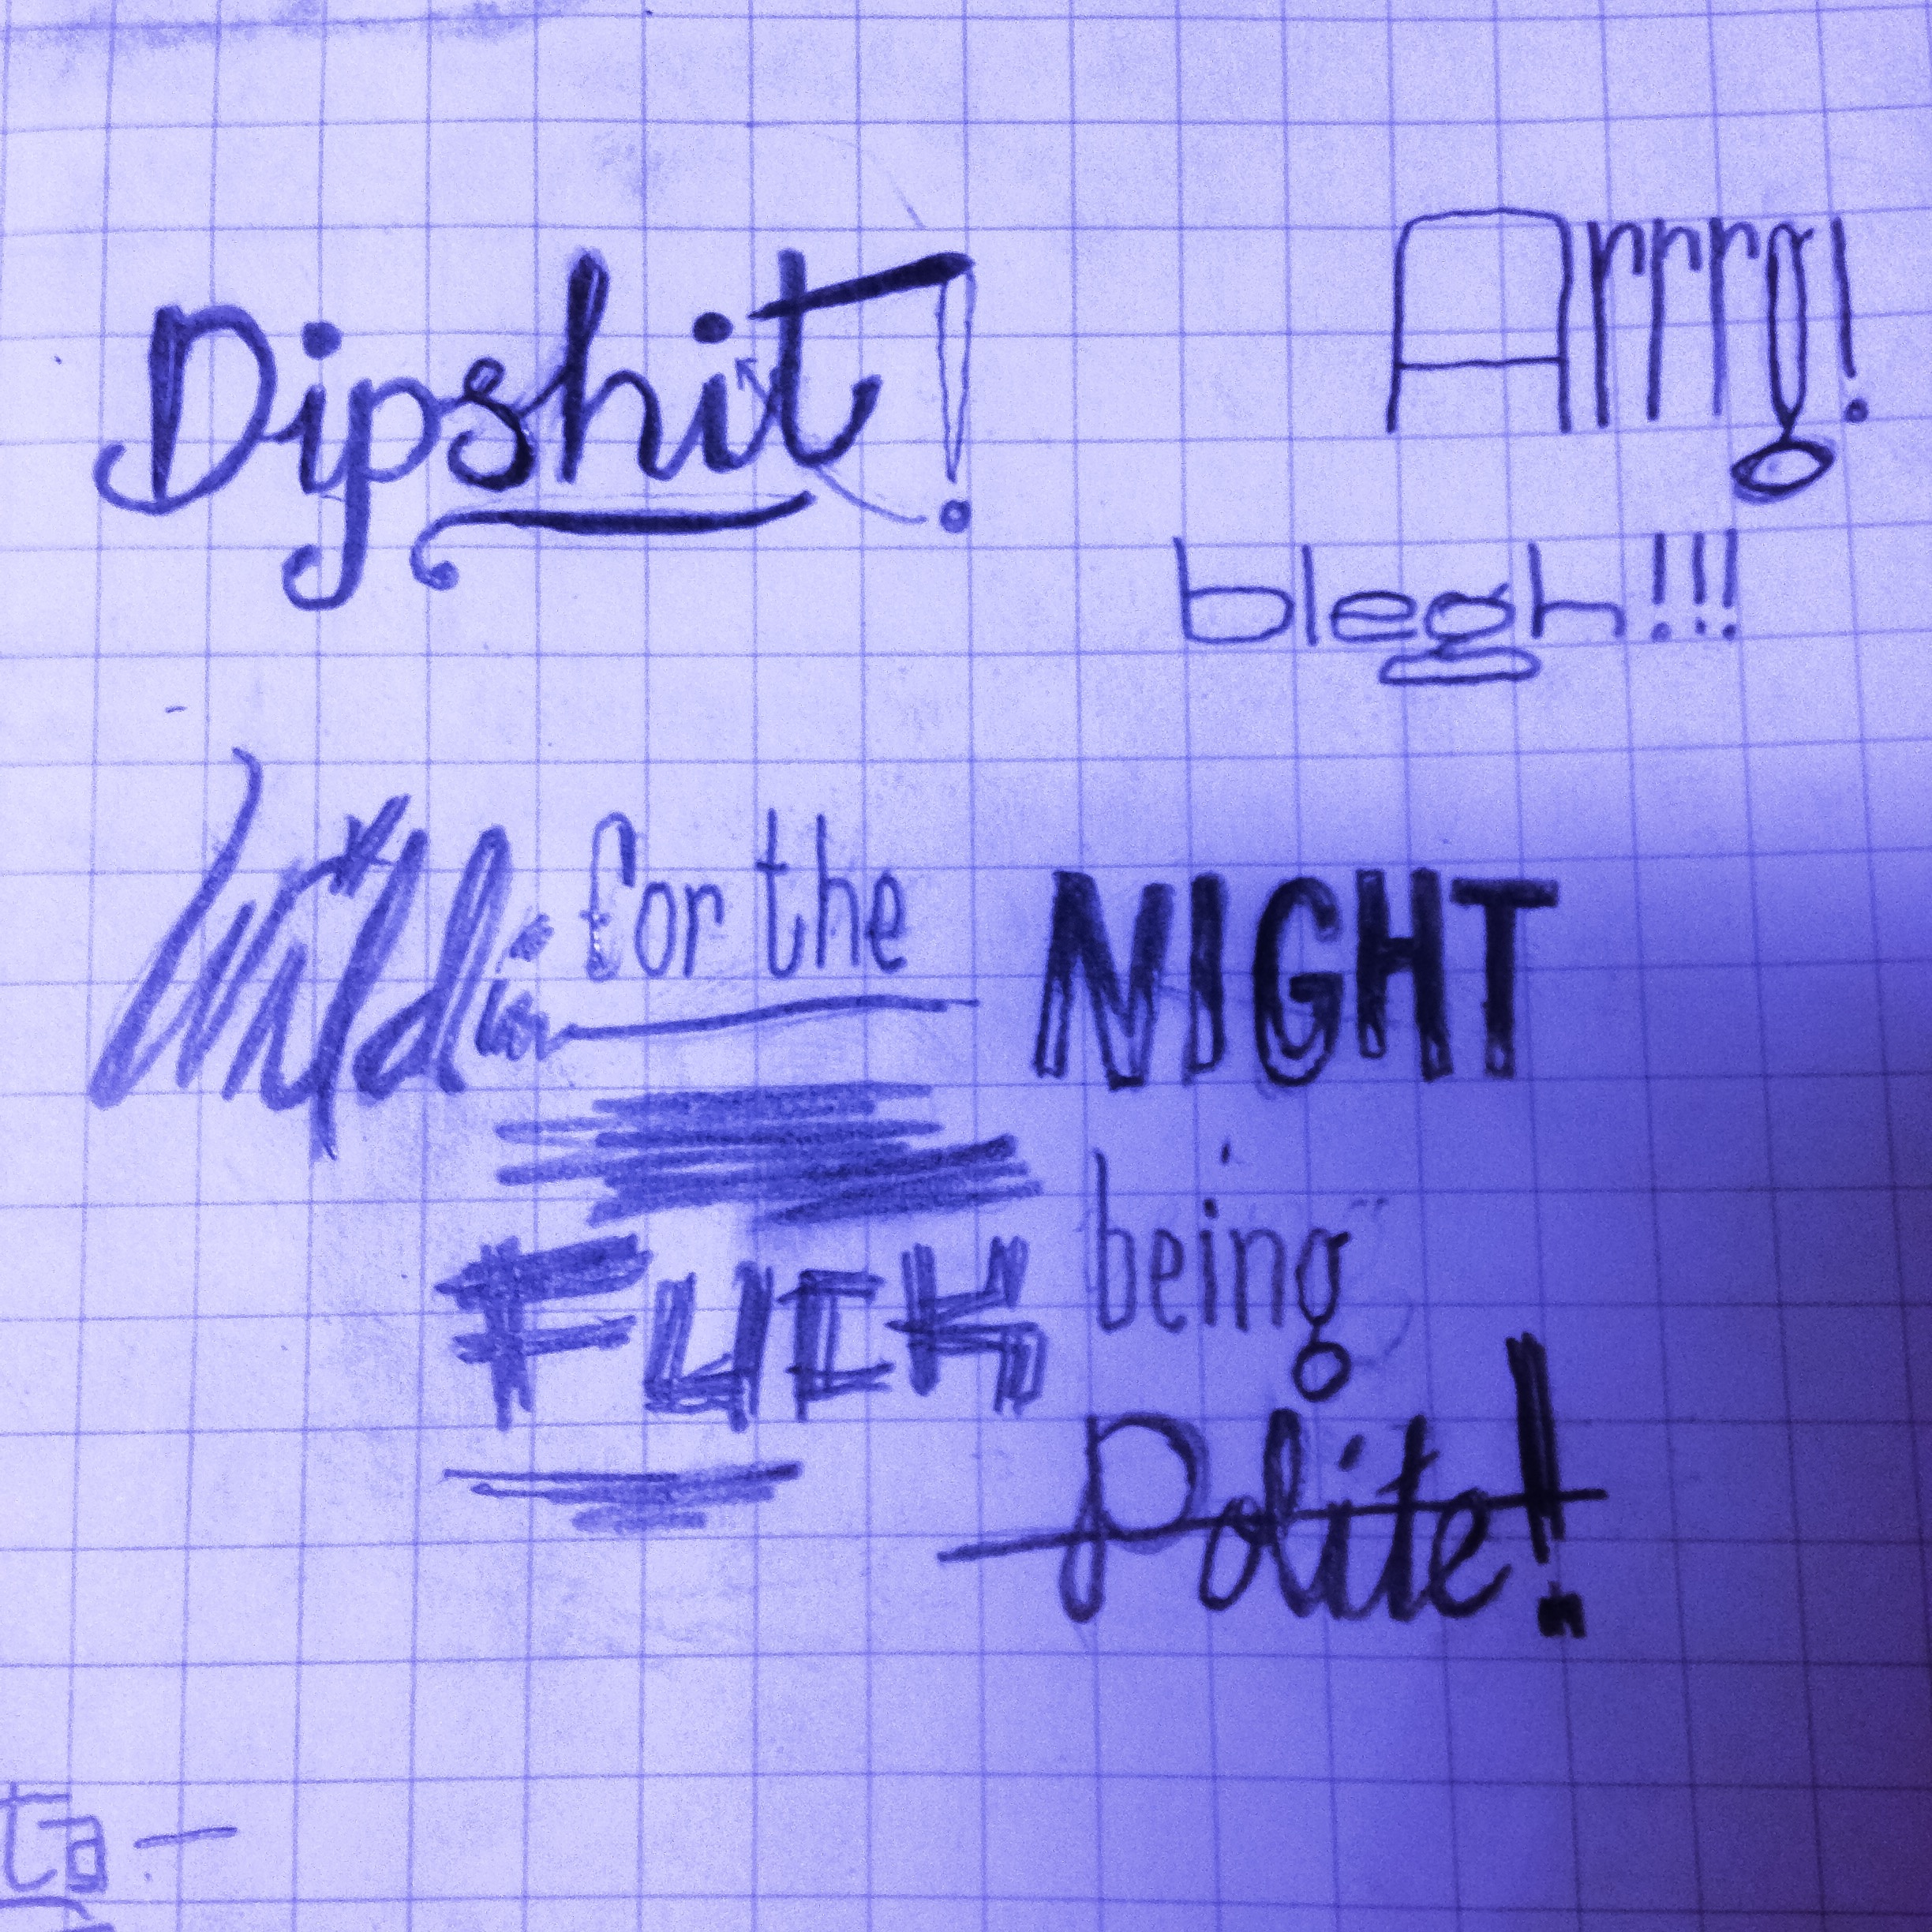 Dipshit!
Arrrg!
blegh!!!
Wildin for the NIGHT
Fuck being
Polite!
ta-